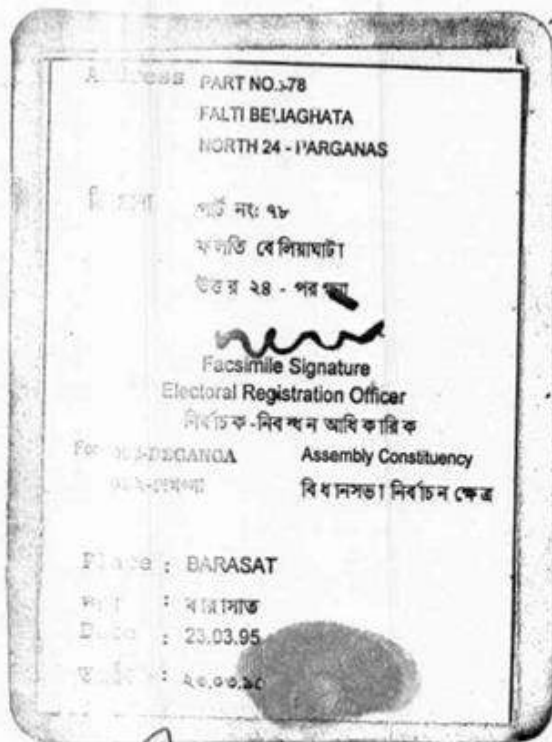 Address PART NO.:-78
FALTI BELIAGHATA
NORTH 24 - PARGANAS
পার্ট নং: ৭৮
ফলতি বেলিয়াঘাটা
উত্তর ২৪ - পরগনা
Facsimile Signature
Electoral Registration Officer
নির্বাচক-নিবন্ধন আধিকারিক
For DEGANGA Assembly Constituency
বিধানসভা নির্বাচন ক্ষেত্র
Place : BARASAT
: বারাসাত
Date : 23.03.95
: ২৩.০৩.৯৫